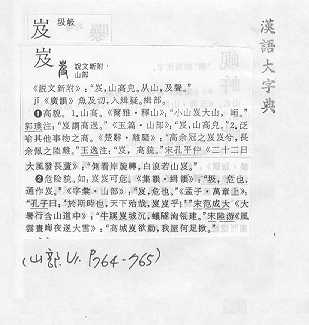 岌
級
漢語大字典
岌
說文新附
山部
《說文新附》:“岌,山高皃。从山,及聲。”
jí《廣韻》魚及切,入緝疑。緝部。
❶高貌。1.山高。《爾雅·釋山》:“小山岌大山,峘。”
郭璞注:“岌謂高過。”《玉篇·山部》:“岌,山高皃。”2.泛
指其他事物之高。《楚辭·離騷》:“高余冠之岌岌兮,長
余佩之陸離。”王逸注:“岌,高貌。”宋孔平仲《二十二日
大風發長蘆》:“側看岸旋轉,白浪若山岌。”
❷危險。如:岌岌可危。《集韻·緝韻》:“㞦,危也,
通作岌。”《字彙·山部》:“岌,危也。”《孟子·萬章上》:
“孔子曰:‘於斯時也,天下殆哉,岌岌乎!’”宋范成大《大
暑行含山道中》:“牛蹊岌城沉,蟻隧洶瓴建。”宋陸游《風
雲晝晦夜遂大雪》:“高城岌欲動,我屋何足掀。”
(山部. V1. P764-765)